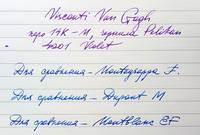 Visconti Van Gogh
перо 14К - М, чернила Pelikan
4001 Violet
Для сравнения - Montegrappa F.
Для сравнения - Dupont M
Для сравнения - Montblanc EF